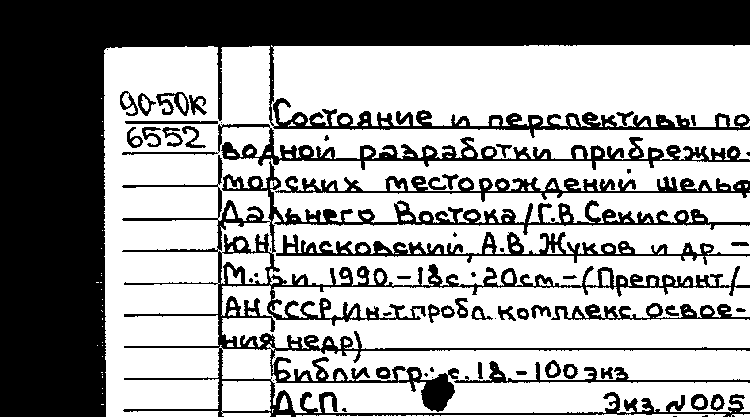 90-50к
6552
Состояние и перспективы по
водной разработки прибрежно-
морских месторождений шельф
Дальнего Востока/Г.В.Секисов,
Ю.Н.Нисковский, А.В.Жуков и др. –
М.: Б.и., 1990.–18с.; 20см.–(Препринт/
АН СССР, Ин-т пробл. комплекс. освое-
ния недр)
Библиогр.: с.18.–100 экз
ДСП. Экз. №005